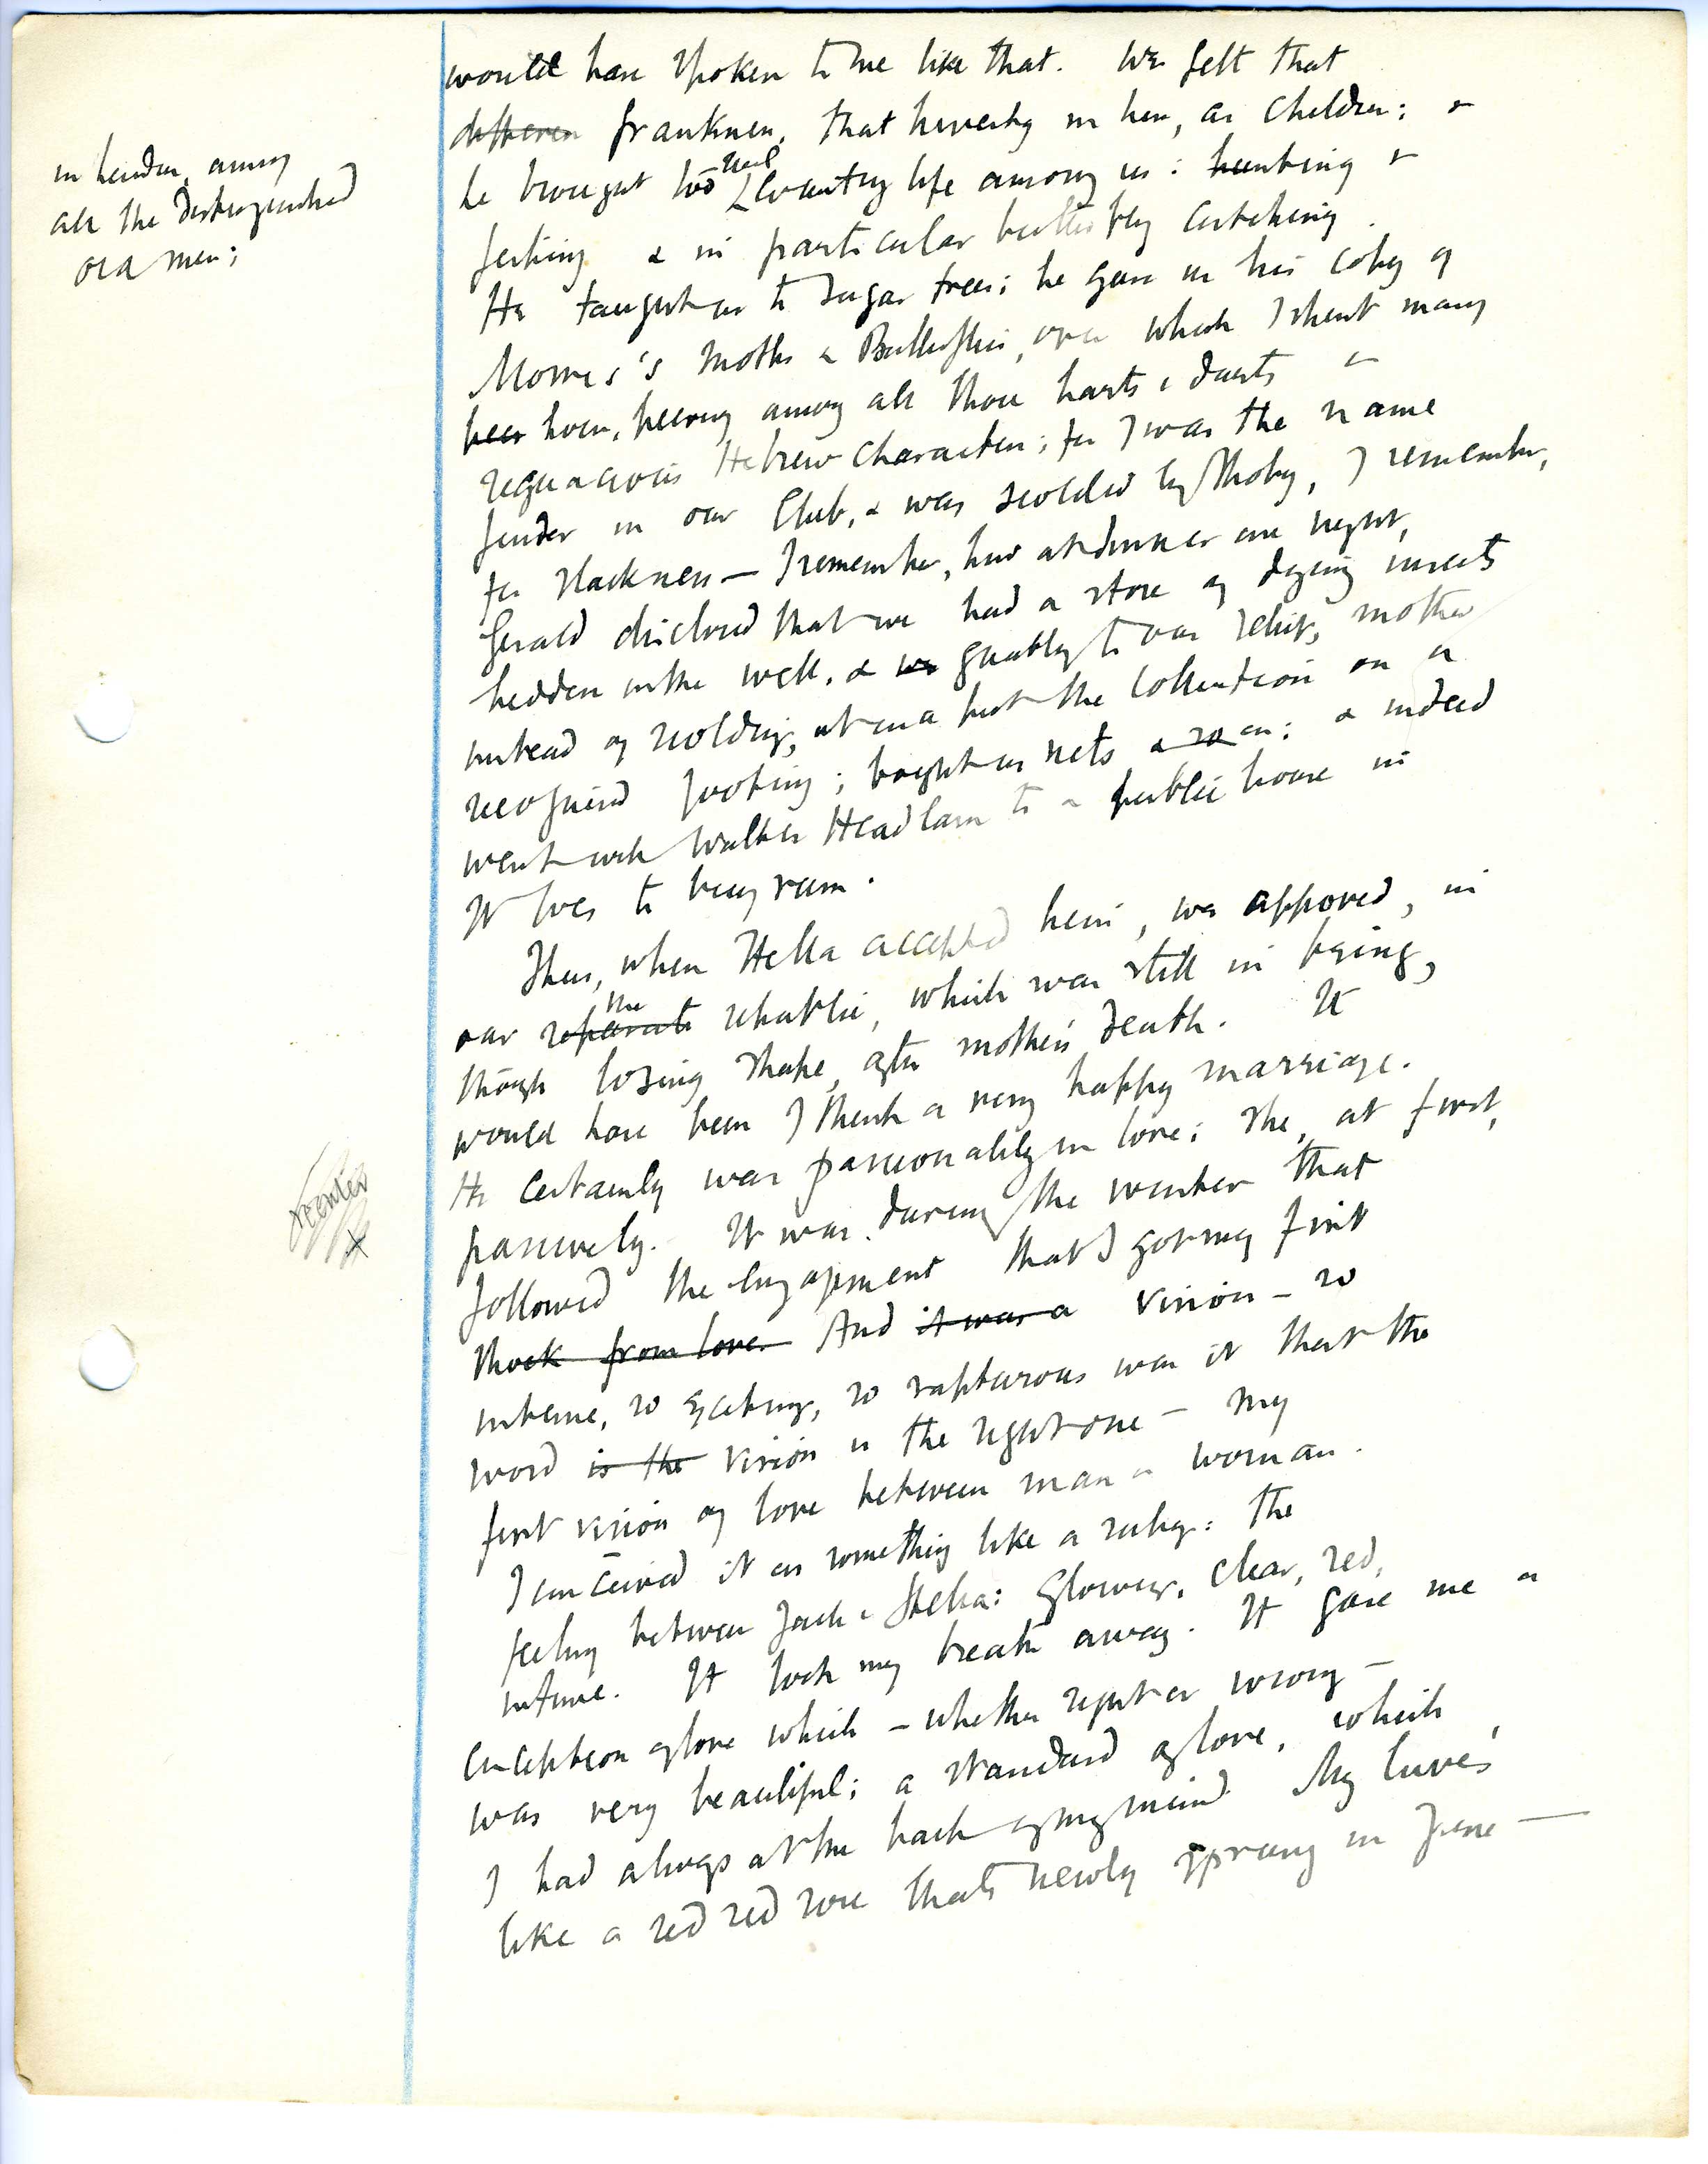 would have spoken to me like that. We felt that
differen frankness, that honesty in him, as children; &
in London, among
all the distinguished
old men;
he brought too real country life among us: hunting &
fishing & in particular butterfly catching.
He taught us to sugar trees; he gave us his copy of
Morris's Moths & Butterflies, over which I spent many
hours, hunting among all those harts & darts &
setaceous Hebrew characters; for I was the name
finder in our Club, & was scolded by Thoby, I remember,
for slackness — I remember, how at dinner one night,
Gerald disclosed that we had a store of dying insects
hidden in the well, & we greatly to our relief, mother
instead of scolding, at once put the collection on a
recognised footing; bought us nets & so on; & indeed
went with Walter Headlam to a public house in
St Ives to buy rum.
Thus, when Stella accepted him, we approved, in
our separate the republic, which was still in being,
though losing shape, after mother's death. It
would have been I think a very happy marriage.
He certainly was passionately in love; she, at first,
passively. It was during the winter that
followed the engagement that I got my first
shock from love. And it was a vision — so
intense, so exciting, so rapturous was it that the
word is the vision is the right one — my
first vision of love between man & woman.
I conceived it as something like a ruby: the
feeling between Jack & Stella: glowing, clear, red,
intense. It took my breath away. It gave me a
conception of love which — whether right or wrong —
was very beautiful; a standard of love, which
I had always at the back of my mind. My luve's
like a red red rose thats newly sprung in June —